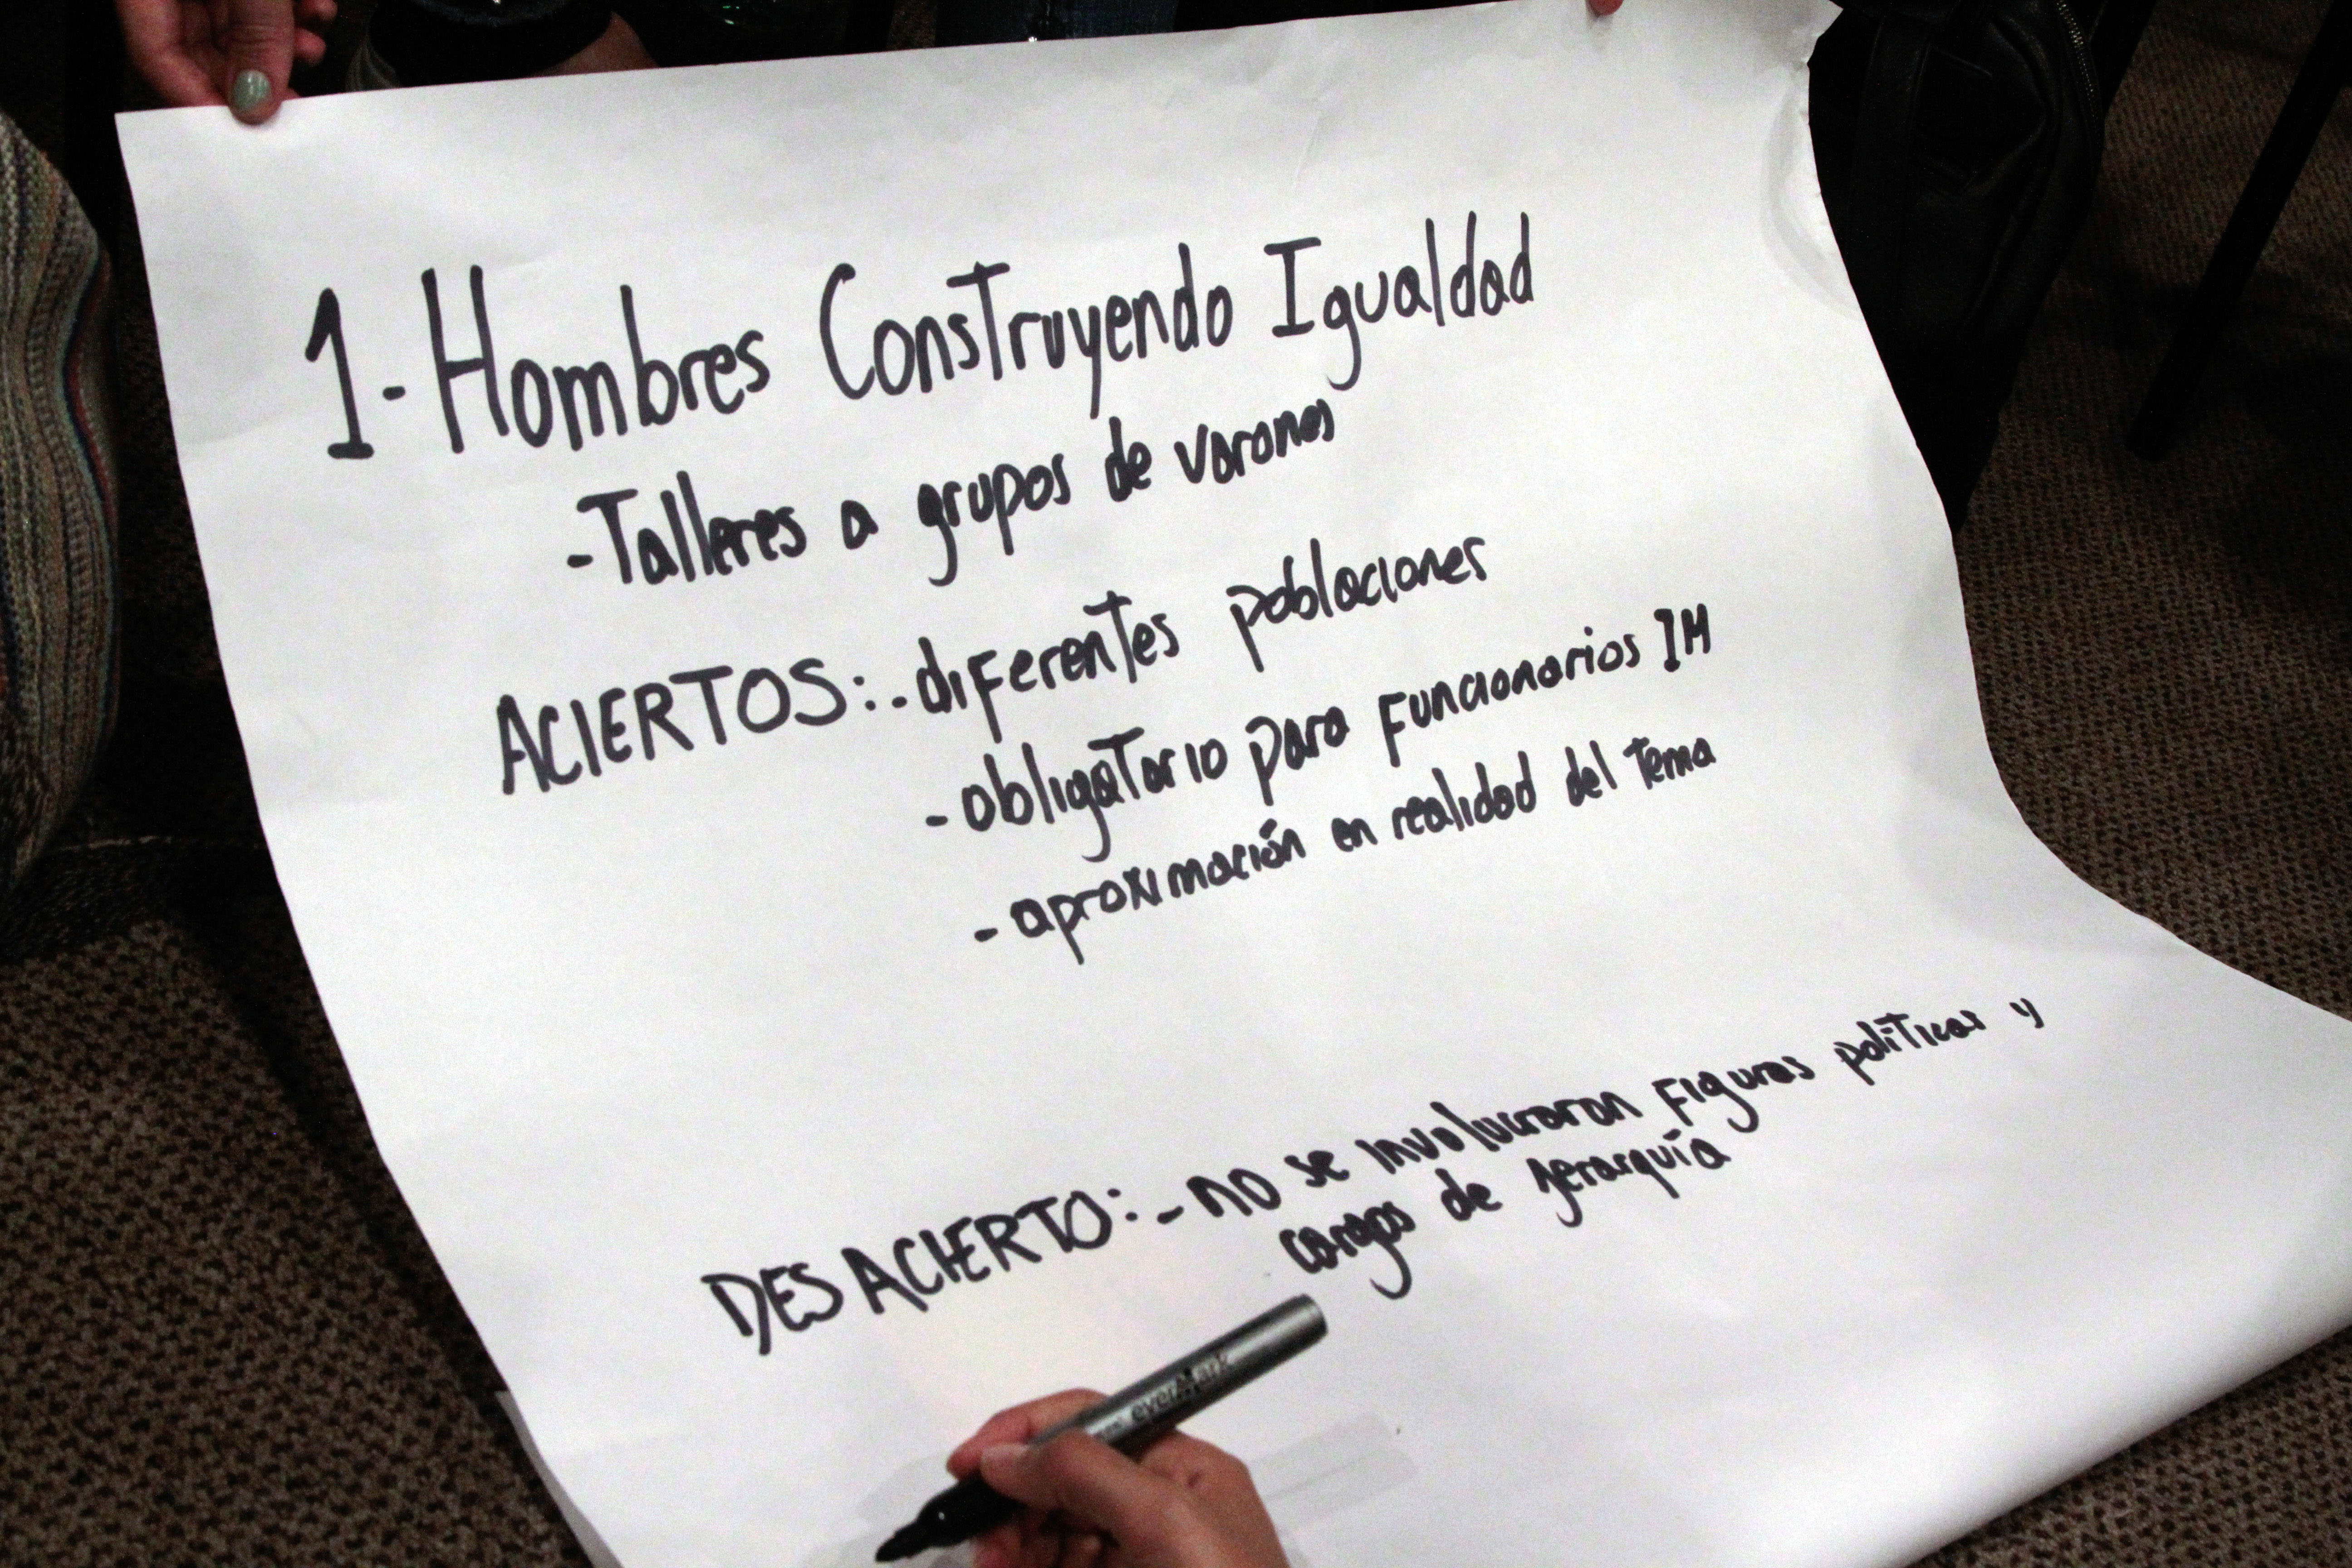 1- Hombres Construyendo Igualdad
-Talleres a grupos de varones
ACIERTOS:.diferentes poblaciones
-obligatorio para funcionarios IM
- aproximación en realidad del tema
DESACIERTO:-no se involucraron figuras políticas y
cargos de jerarquía
evermark